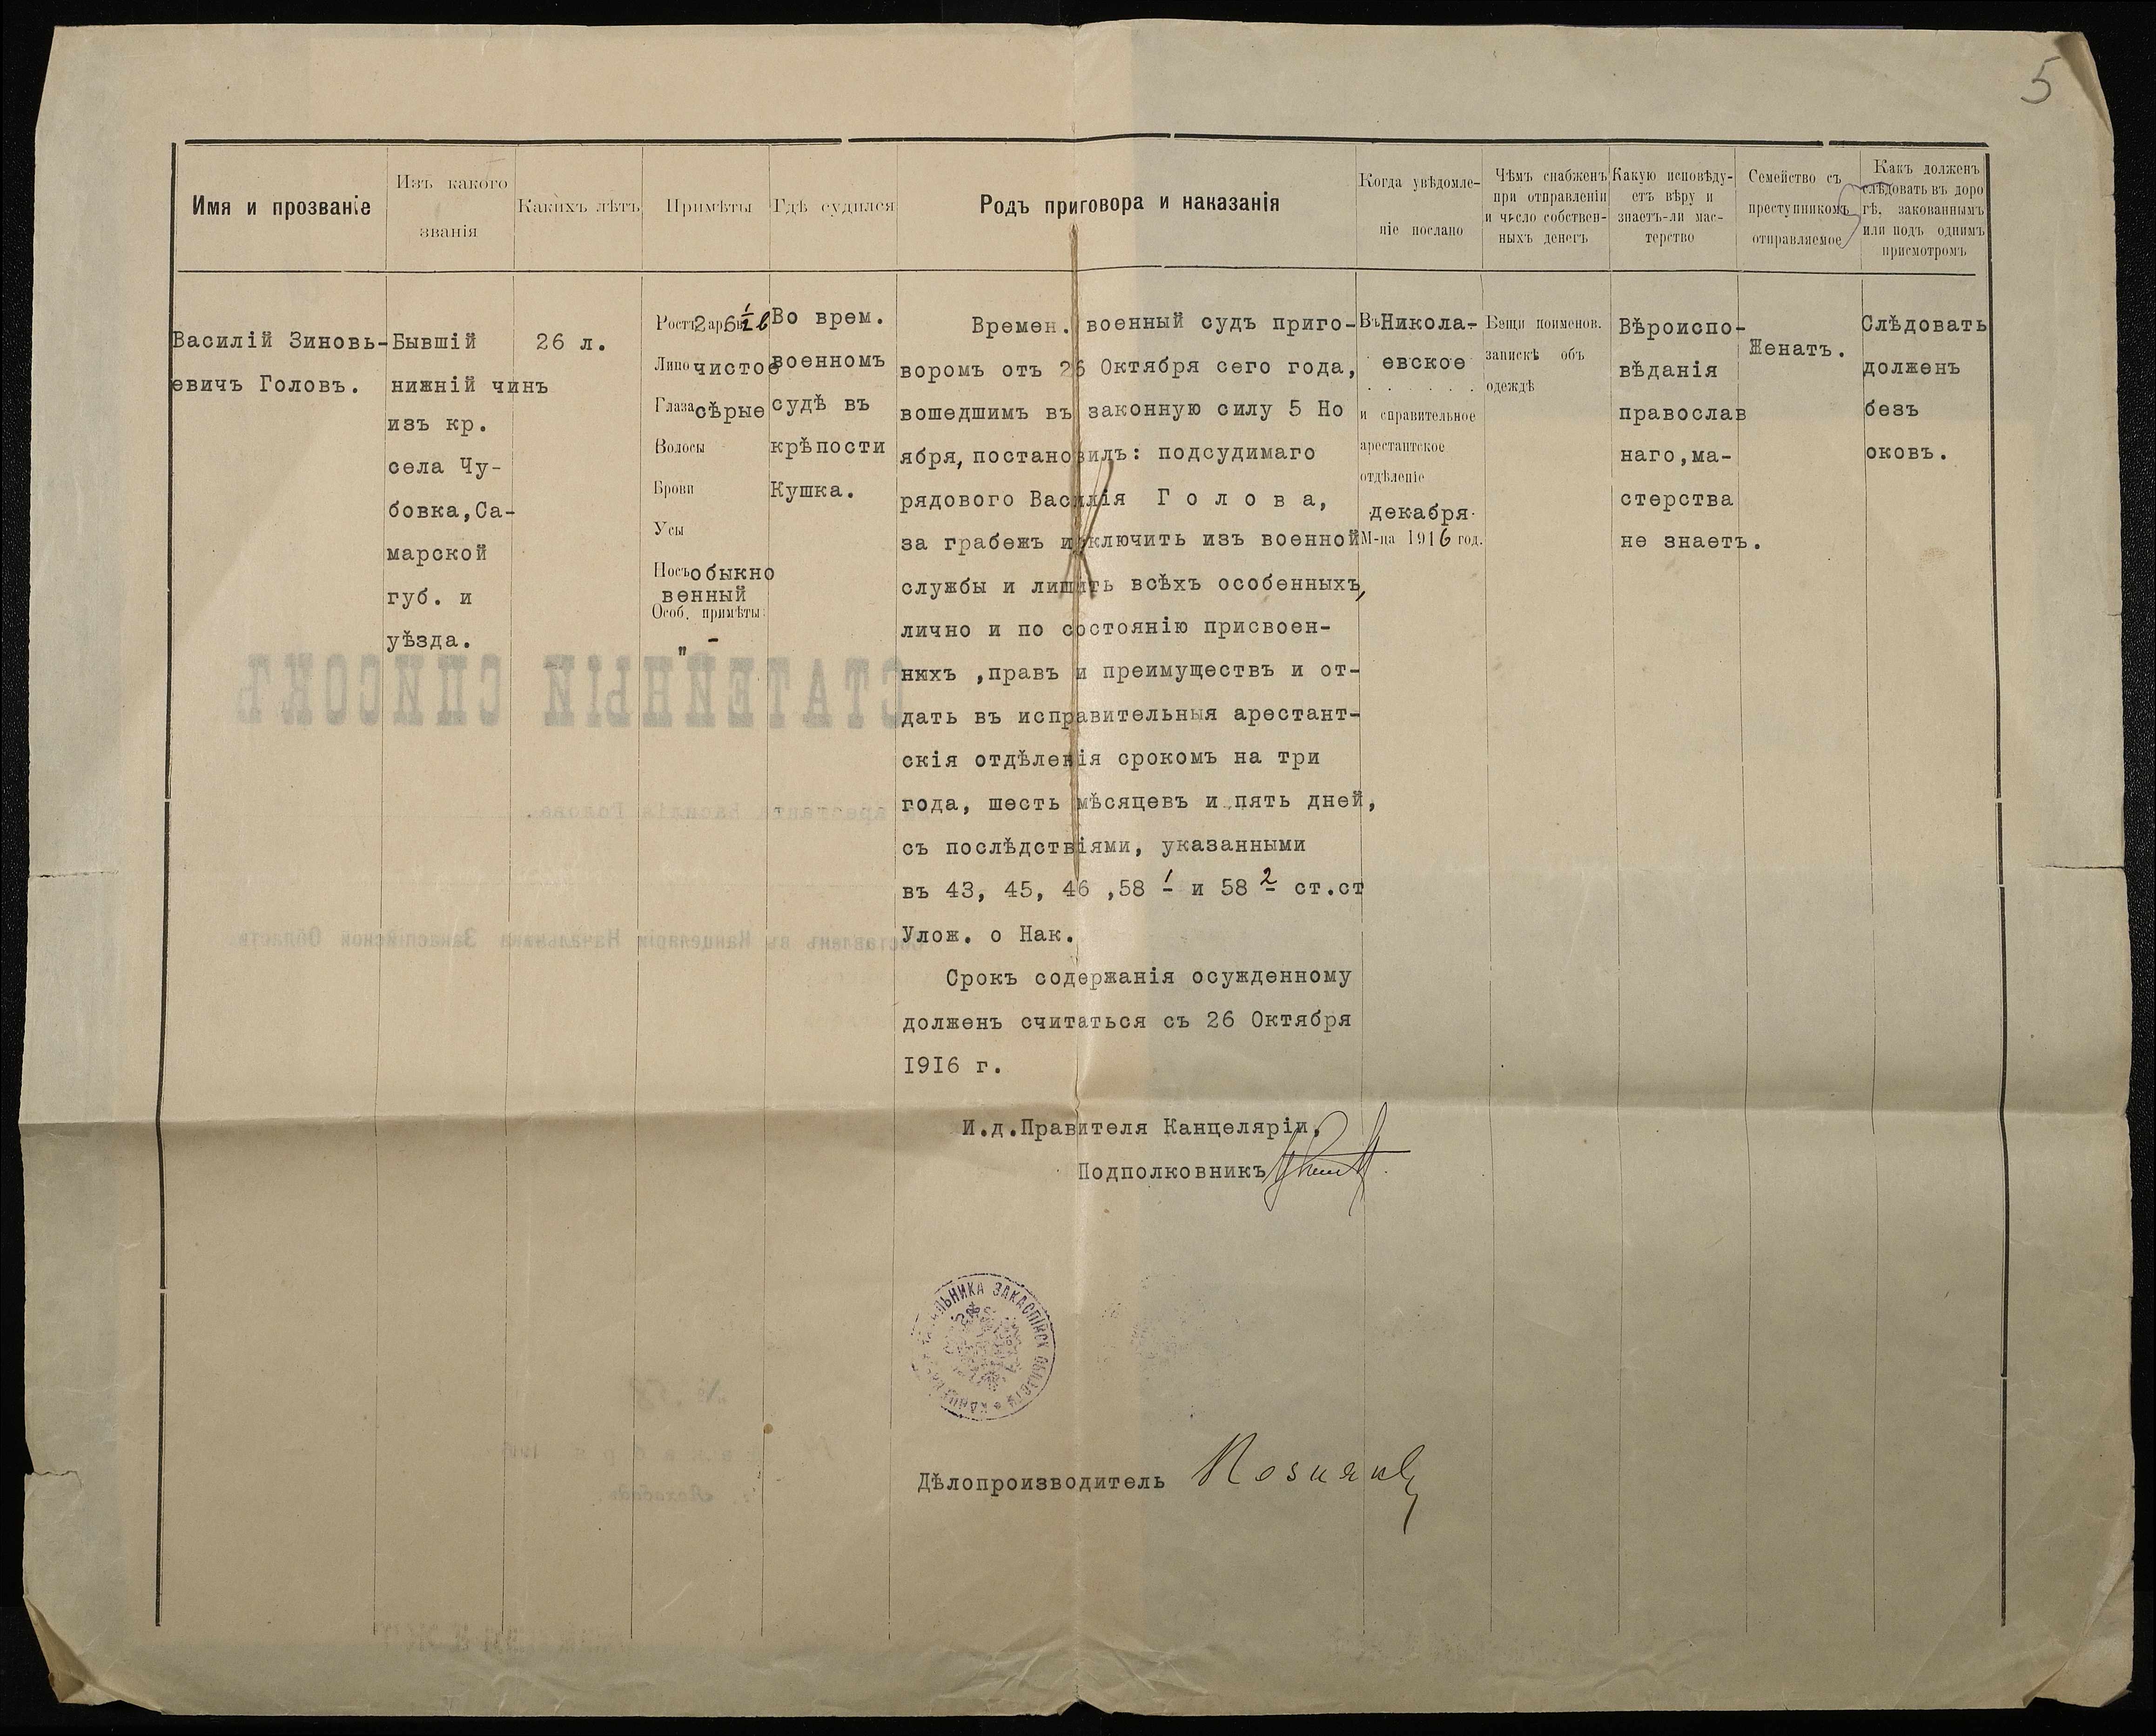 5
Имя и прозваніе
Изъ какого
званія
Какихъ лѣтъ
Примѣты
Гдѣ судился
Родъ приговора и наказанія
Когда увѣдомле-
ніе послано
Чѣмъ снабженъ
при отправленіи
и число собствен-
ныхъ денегъ
Какую исповѣду-
етъ вѣру и
знаетъ-ли мас-
терство
Семейство съ
преступникомъ
отправляемое
Какъ долженъ
слѣдовать въ доро
гѣ, закованнымъ
или подъ однимъ
присмотромъ
Василій Зиновь-
евичъ Головъ.
Бывшій
нижній чинъ
изъ кр.
села Чу-
бовка,Са-
марской
губ. и
уѣзда.
26 л.
Ростъ 2 ар 6 1/2 в
Лицо чистое
Глаза сѣрые
Волосы
Брови
Усы
Носъ обыкно
венный
Особ. примѣты:
" -
Во врем.
военномъ
судѣ въ
крѣпости
Кушка.
Времен. военный судъ приго-
воромъ отъ 26 Октября сего года,
вошедшимъ въ законную силу 5 Но
ября, постановилъ: подсудимаго
рядового Василія Г о л о в а,
за грабежъ исключить изъ военной
службы и лишить всѣхъ особенныхъ,
лично и по состоянію присвоен-
ныхъ ,правъ и преимуществъ и от-
дать въ исправительныя арестант-
скія отдѣленія срокомъ на три
года, шесть мѣсяцевъ и пять дней,
съ послѣдствіями, указанными
въ 43, 45, 46 ,58 1 и 58 2 ст.ст
Улож. о Нак.
Срокъ содержанія осужденному
долженъ считаться съ 26 Октября
1916 г.
Въ Никола-
евское
. . . . . .
и справительное
арестантское
отдѣленіе
декабря
М-ца 1916 год.
Вещи поименов.
запискѣ объ
одеждѣ
Вѣроиспо-
вѣданія
православ
наго,ма-
стерства
не знаетъ.
Женатъ.
Слѣдовать
долженъ
безъ
оковъ.
И.д.Правителя Канцеляріи,
Подполковникъ
Дѣлопроизводитель Позняковъ
СТАТЕЙНЫЙ СПИСОКЪ
арестанта Василія Голова.
Составленъ въ Канцеляріи Начальника Закаспійской Области